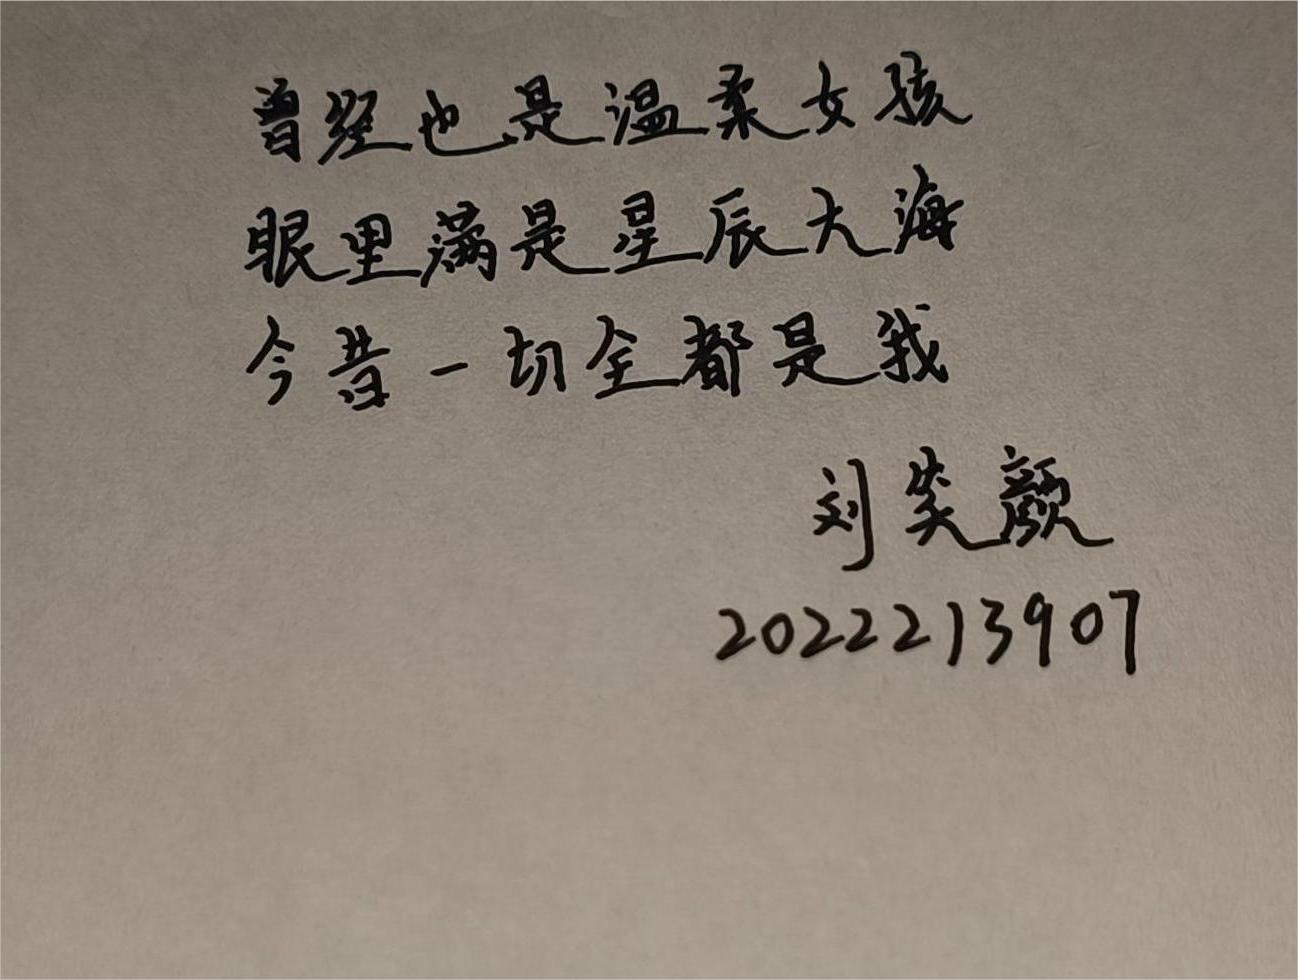 曾经也是温柔女孩
眼里满是星辰大海
今昔一切全都是我
刘笑颜
2022213907